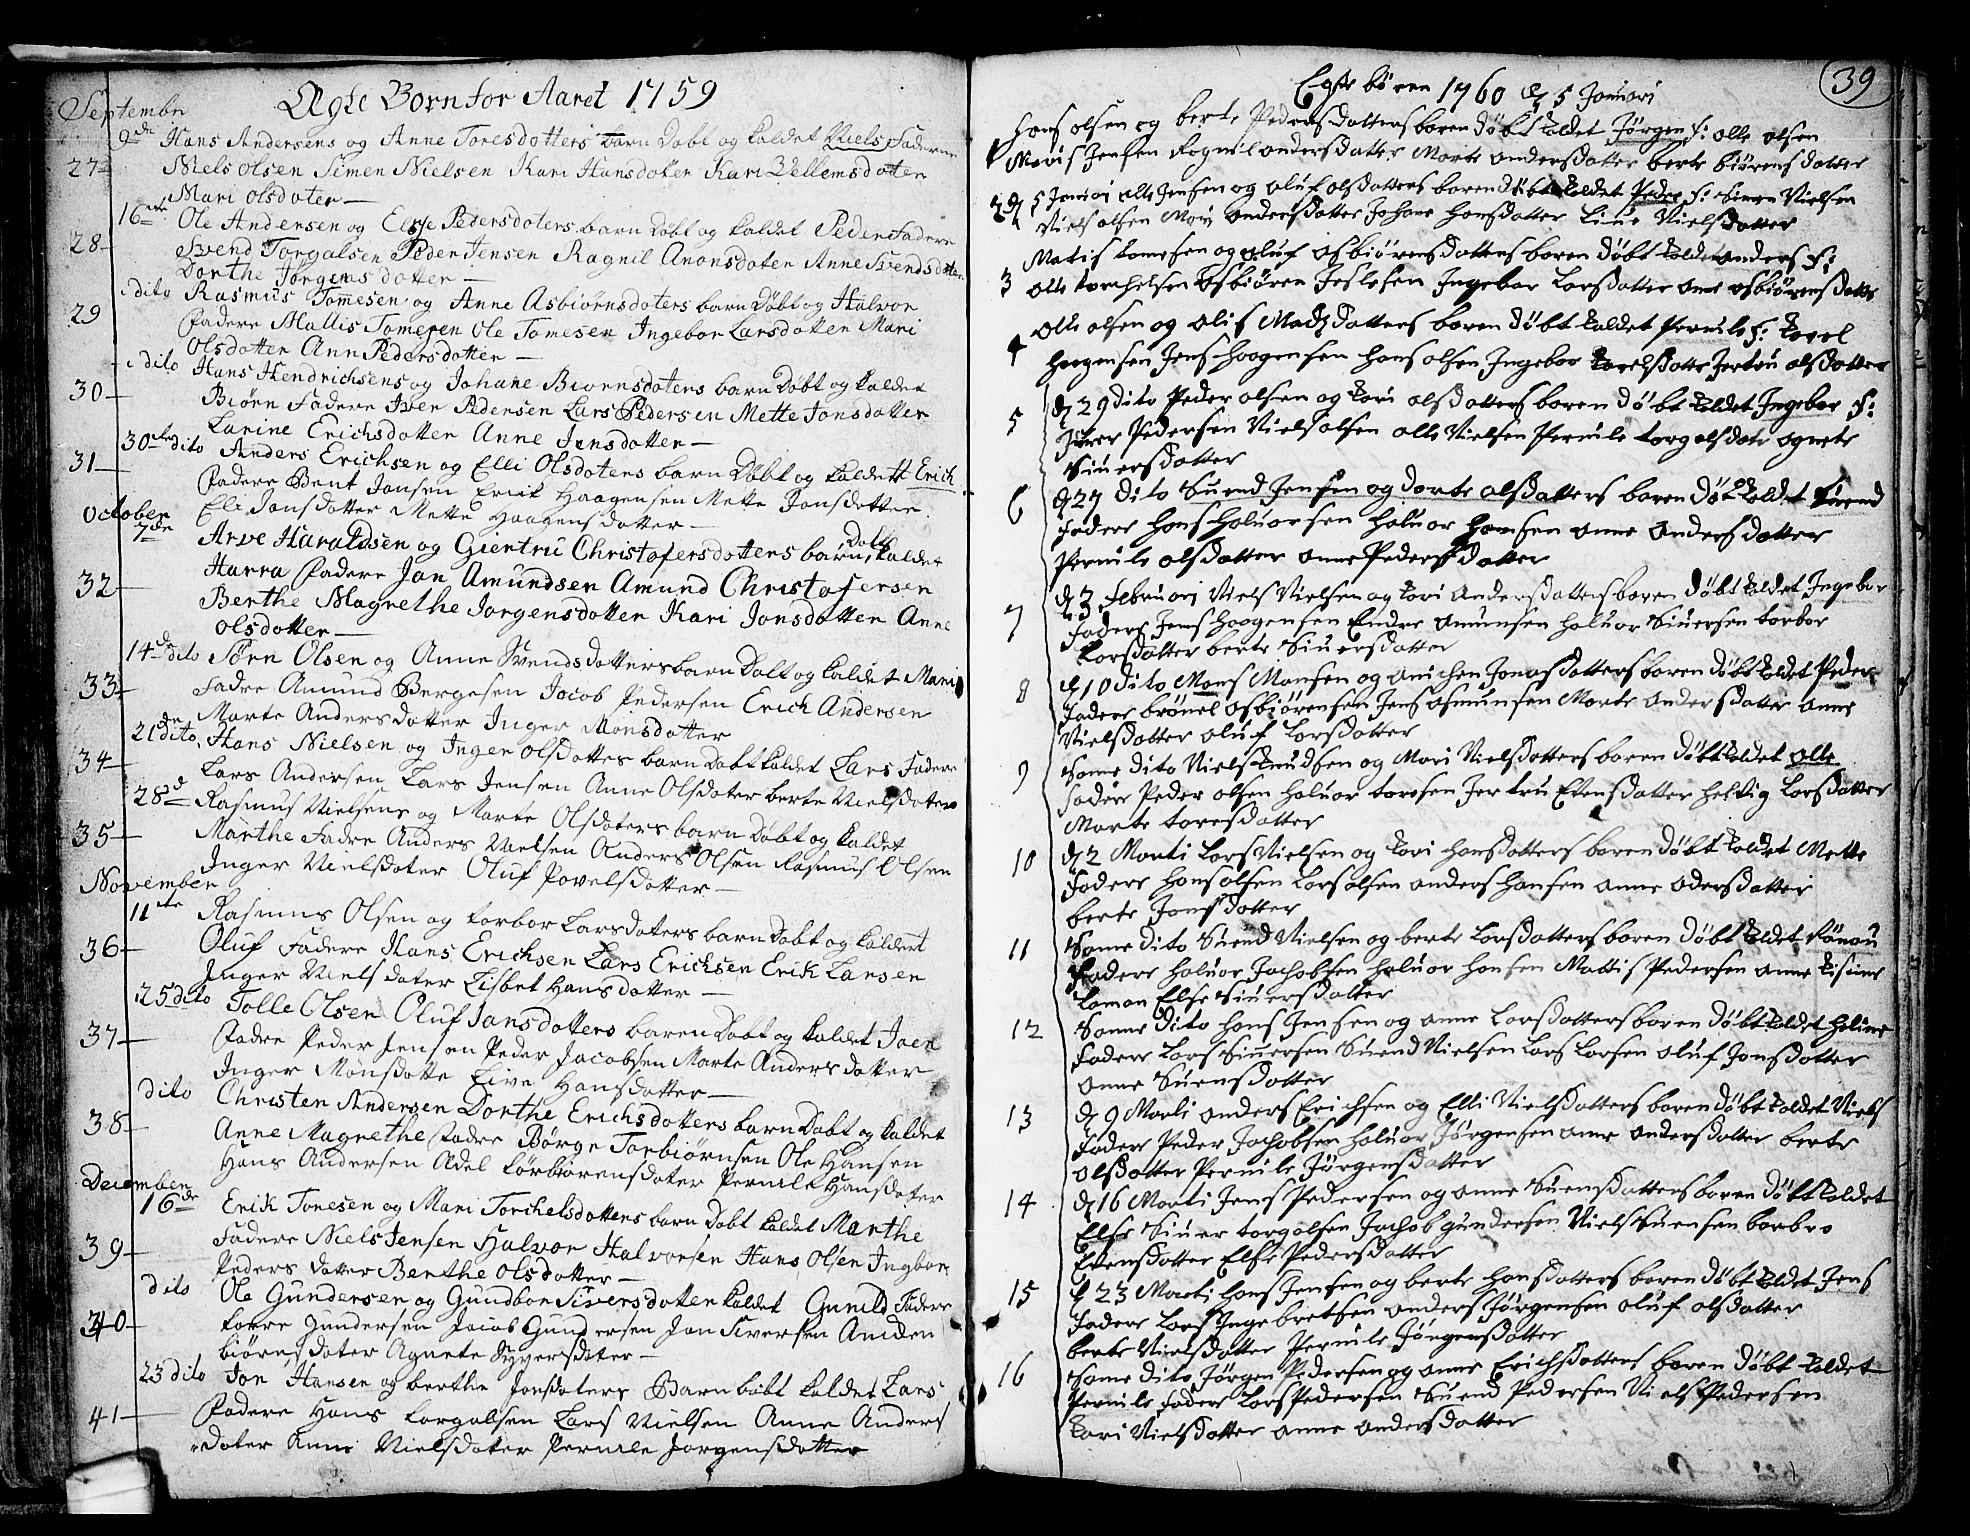 Ægte Börn for Aaret 1759
Septembr
9de Hans Andersens og Anne Toresdotters barn Døbt og kaldet Niels Faderne
27 Niels Olsen Simen Nielsen Kari Hansdoter Kari Vellemsdotter
Mari Olsdoter
16de Ole Andersen og Elsje Pedersdoters barn Døbt og kaldet Peder Fadere
28 Svend Torgalsen Peder Jensen Ragnil Anonsdoter Anne Svendsdotter
Dorthe Jørgensdotter
dito Rasmus Tomesen og Anne Asbiørnsdoters barn Døbt og Halvor
29 Fadere Mallis Tomesen Ole Tomesen Ingebor Larsdotter Mari
Olsdotter Ann Pedersdotter
dito Hans Hendrichsens og Johane Biørnsdoters barn Døbt og kaldet
30 Biørn Fadere Iver Pedersen Lars Pedersen Mette Jonsdotter
Larine Erichsdotter Anne Jensdotter
30te dito Anders Erichsen og Elli Olsdoters barn Døbt og kaldett Erich
31 Fadere Bent Jonsen Erick Haagensen Mette Jonsdotter
Eli Jonsdotter Mette Haagensdotter
October
7de Arve Haraldsen og Giertru Christofersdotters barn Døbt kaldet
32 Harra Fadere Jon Amundsen Amund Christofersen
Berthe Magrethe Jorgensdotter Kari Jonsdotter Anne
Olsdotter
14de dito Sørn Olsen og Anne Svendsdotters barn Døbt og kaldet Mari
33 Fadre Amund Bergesen Jocob Pedersen Erich Andersen
Marte Andersdotter Inger Monsdotter
21de dito Hans Nielsen og Inger Olsdottes barn Døbt kaldet Lars Fadere
34 Lars Andersen Lars Jensen Anne Olsdoter berte Nielsdoter
28d Rasmus Nielsens og Marte Olsdoters barn Døbt og kaldet
35 Marthe Fadre Anders Nielsen Anders Olsen Rasmus Olsen
Inger Nielsdoter Oluf Povelsdotter
November
11te Rasmus Olsen og Torbor Larsdoters barn Døbt og kaldet
36 Oluf Fadere Hans Erichsen Lars Erichsen Erik Larsen
Inger Nielsdater Lisbet Hansdotter
25 dito Tolle Olsen Oluf Jansdotters baren Døbt og kaldet Joen
37 Fadre Peder Jensen Peder Jacobsen Marte Andersdotter
Inger Monsdotte Live Hansdotter
dito Christen Andersen Dorthe Erichsdotters barn Døbt og kaldet
38 Anne Magrethe Fadre Børge Torbiørnsen Ole Hansen
Hans Andersen Adel Torbiørensdater Pernile Hansdater
December
16de Erik Toresen og Mari Torchelsdotters barn Døbt kaldet Marthe
39 Fadere Niels Jensen Halvor Halvorsen Hans Olsen Ingbor
Pedersdatter Berthe Olsdotter
dito Ole Gundersen og Gundbor Siversdotter kaldet Gunild Fadere
40 Torre Gundersen Jacob Gundersen Jon Siversen Aniken
biørnsdater Agnete Sygersdater
23 dito Jon Hansen og berthe Jonsdaters Barn bøbt kaldet Lars
41 Fadere Hans Torgalsen Lars Nielsen Anne Anders
dater Anne Nielsdater Pernele Jorgensdatter
39
Egte børen 1760 d 5 Januari
Hans olsen og berte Pedersdatters baren døbt kaldet Jørgen F: olle olsen
1 Moris Jensen Rognil andersdatter Marte andersdatter berte biørensdatter
2 d 5 Januari olle Jensen og oluf olsdatters baren døbt kaldet Peder F: Simen Nielsen
Niels olsen Mari Andersdatter Johane Hansdatter Live Nielsdatter
Matis tomesen og oluf osbiørensdatters baren døbt kaldet anders F:
3 olle torchelsen osbiøren Ieslesen Ingebor Larsdatter ane osbiørensdatte
olle olsen og olis Madsdatters baren døbt kaldet Pernile F: Povel
4 Haagensen Jens Haagensen Hans olsen Ingebor Povelsdatter Jertru olsdatter
d 29 dito Peder olsen og Kari olsdatters baren døbt kaldet Ingebor F:
5 Iver Pedersen Niels olsen olle Nielsen Pernile torgolsdate agnete
Siversdatter
6 d 27 dito Suend Jensen og dorte olsdatters baren døbt kaldet Suend
Fadere Hans Haluorsen Haluor Hansen anne Andersdatter
Pernile olsdatter anne Pedersdatter
d 3 Februari Niels Nielsen og Kari Andersdatters baren døbt kaldet Ingebor
7 Fadere Jens Haagensen Endre Amunsen Haluor Siuersen barbor
Larsdatter berte Siuersdatter
8 d 10 dito Mons Monsen og Anichen Jonasdatters baren døbt kaldet Peder
Fadere brønel Asbiørensen Jens Asmunsen Marte Andersdatter Anne
Nielsdatter oluf Larsdatter
9 Same dito Niels Knudsen og Mari Nielsdatters baren døbt kaldet olle
Fadere Peder olsen Haluor toresen Jertru Evensdatter Heluig Larsdatter
Marte toresdatter
10 d 2 Marti Lars Nielsen og Kari Hansdatters baren døbt kaldet Mette
Fadere Hans olsen Lars olsen anders Hansen anne Adersdatter
berte Jonsdatter
11 Same dito Suend Nielsen og berte Larsdatters baren døbt kaldet Rønau
Fadere Haluor Jachobsen Haluor Hansen Mattis Pedersen anne
Laman Else Siuersdatter
12 Same dito Hans Jensen og anne Larsdatters baren døbt kaldet Heline
Fadere Lars Siuersen Suend Nielsen Lars Larsen oluf Jonsdatter
Anne Suensdatter
13 d 9 Marti Anders Erichsen og Elli Nielsdatters baren døbt kaldet Niels
Fadere Peder Jachobsen Haluor Jørgensen Anne Andersdatter berte
olsdatter Pernile Jørgensdatter
14 d 16 Marti Jens Pedersen og anne Suensdatters baren døbt kaldet
Else Siuer torgolsen Jachob gundersen Niels Suensen barbro
Evensdatter Else Pedersdatter
15 d 23 Marti Hans Jensen og berte Hansdatters baren døbt kaldet Jens
Fadere Lars Ingebretsen anders Jørgensen oluf olsdatter
berte Nielsdatter Pernile Jørgensdatter
16 Same dito Jørgen Pedersen og anne Erichsdatters baren døbt kaldet
Pernile Fadere Lars Pedersen Suend Pedersen Niels Pedersen
Kari Nielsdatter anne Andersdatter